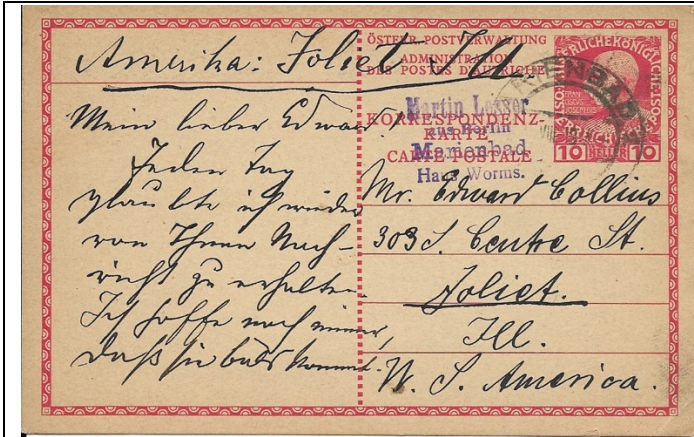 Amerika: Joliet Ill
ÖSTERR. POSTVERWALTUNG
ADMINISTRATION
DES POSTES D'AUTRICHE
KORRESPONDENZ-
KARTE
CARTE POSTALE
Martin Lesser
aus Berlin
Marienbad
Haus Worms.
MARIENBAD
10 HELLER 10
Mein lieber Edward!
Jeden Tag
glaubte ich wieder
von Ihnen Nach-
richt zu erhalten.
Ich hoffe noch immer,
daß sie bald kommt.
Mr. Edward Collins
303 S. Centre St.
Joliet.
Ill.
N. S. America.